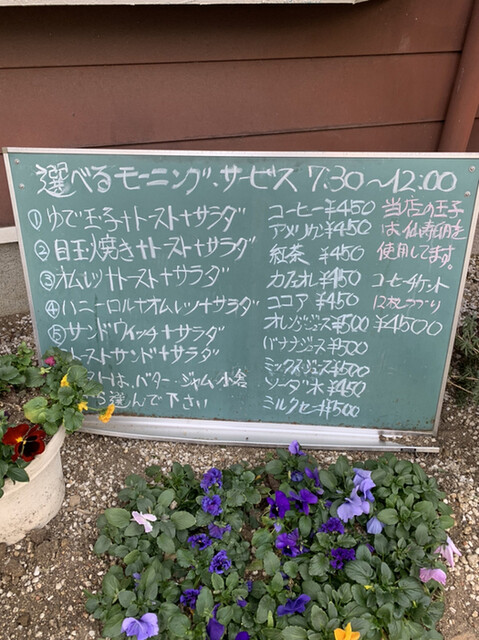 選べるモーニング・サービス 7:30～12:00
①ゆで玉子+トースト+サラダ
②目玉焼き+トースト+サラダ
③オムレツ+トースト+サラダ
④ハニーロール+オムレツ+サラダ
⑤サンドウィッチ+サラダ
トーストサンド+サラダ
ストは、バター・ジャム・小倉
ら選んで下さい
コーヒー ¥450
アメリカン ¥450
紅茶 ¥450
カフェオレ ¥450
ココア ¥450
オレンジジュース ¥500
バナナジュース ¥500
ミックスジュース ¥500
ソーダ水 ¥450
ミルクセーキ ¥500
当店の玉子
は
を
使用してます。
コーヒーチケット
12枚つづり
¥4500